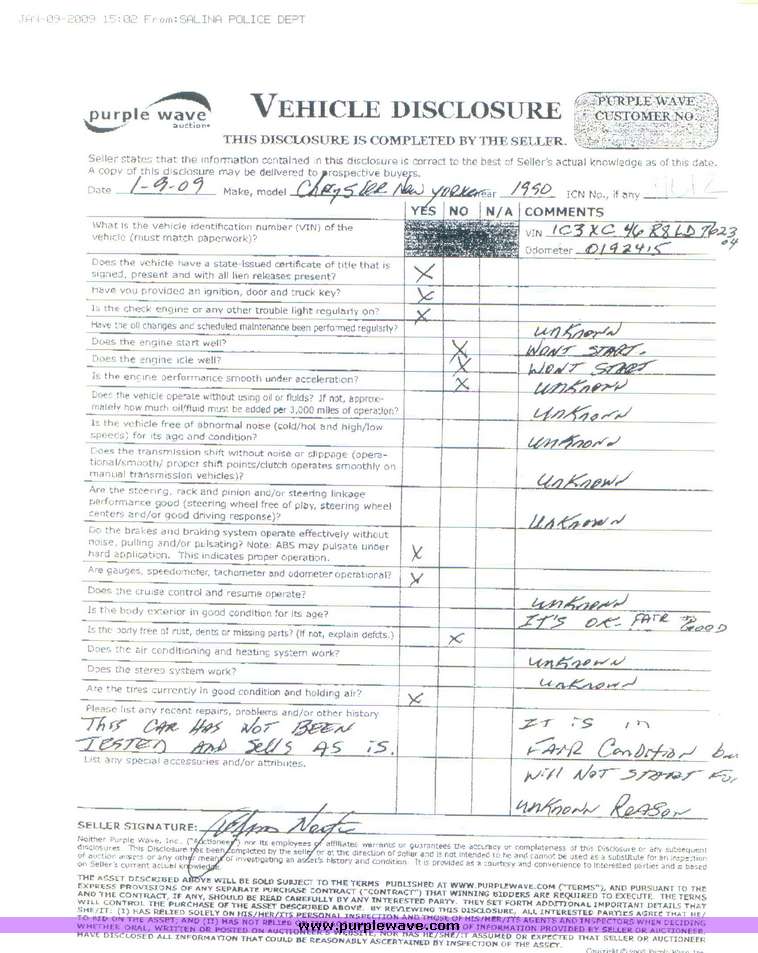 JAN-09-2009 15:02 From:SALINA POLICE DEPT
purple wave
auction
VEHICLE DISCLOSURE
PURPLE WAVE
CUSTOMER NO.
THIS DISCLOSURE IS COMPLETED BY THE SELLER.
Seller states that the information contained in this disclosure is correct to the best of Seller's actual knowledge as of this date.
A copy of this disclosure may be delivered to prospective buyers.
Date 1-9-09 Make, model Chrysler New Yorker Year 1990 ICN No., if any
YES NO N/A COMMENTS
What is the vehicle identification number (VIN) of the
vehicle (must match paperwork)?
VIN 1C3XC46R8LD762304
Odometer 0192415
Does the vehicle have a state-issued certificate of title that is
signed, present and with all lien releases present? X
Have you provided an ignition, door and truck key? X
Is the check engine or any other trouble light regularly on? X
Have the oil changes and scheduled maintenance been performed regularly? unknown
Does the engine start well? X WONT START.
Does the engine idle well? X WONT START
Is the engine performance smooth under acceleration? X unknown
Does the vehicle operate without using oil or fluids? If not, approxi-
mately how much oil/fluid must be added per 3,000 miles of operation? unknown
Is the vehicle free of abnormal noise (cold/hot and high/low
speeds) for its age and condition? unknown
Does the transmission shift without noise or slippage (opera-
tional/smooth/ proper shift points/clutch operates smoothly on
manual transmission vehicles)? unknown
Are the steering, rack and pinion and/or steering linkage
performance good (steering wheel free of play, steering wheel
centers and/or good driving response)? unknown
Do the brakes and braking system operate effectively without
noise, pulling and/or pulsating? Note: ABS may pulsate under
hard application. This indicates proper operation. X
Are gauges, speedometer, tachometer and odometer operational? X
Does the cruise control and resume operate? unknown
Is the body exterior in good condition for its age? IT'S OK- FAIR to GOOD
Is the body free of rust, dents or missing parts? (If not, explain defcts.) X
Does the air conditioning and heating system work? unknown
Does the stereo system work? unknown
Are the tires currently in good condition and holding air? X
Please list any recent repairs, problems and/or other history
This CAR HAS NOT BEEN
TESTED AND Sells AS iS.
IT iS in
FAIR Condition bu
Will NOT START For
unknown Reason
List any special accessories and/or attributes.
SELLER SIGNATURE:
Neither Purple Wave, Inc. ("Auctioneer") nor its employees or affiliates warrants or guarantees the accuracy or completeness of this Disclosure or any subsequent
disclosures. This Disclosure has been completed by the seller or at the direction of Seller and is not intended to be and cannot be used as a substitute for an inspection
of auction assets or any other means of investigating an asset's history and condition. It is provided as a courtesy and convenience to interested parties and is based
on Seller's current actual knowledge.
THE ASSET DESCRIBED ABOVE WILL BE SOLD SUBJECT TO THE TERMS PUBLISHED AT WWW.PURPLEWAVE.COM ("TERMS"), AND PURSUANT TO THE
EXPRESS PROVISIONS OF ANY SEPARATE PURCHASE CONTRACT ("CONTRACT") THAT WINNING BIDDERS ARE REQUIRED TO EXECUTE. THE TERMS
AND THE CONTRACT, IF ANY, SHOULD BE READ CAREFULLY BY ANY INTERESTED PARTY. THEY SET FORTH ADDITIONAL IMPORTANT DETAILS THAT
WILL CONTROL THE PURCHASE OF THE ASSET DESCRIBED ABOVE. BY REVIEWING THIS DISCLOSURE, ALL INTERESTED PARTIES AGREE THAT HE/
SHE/IT: (1) HAS RELIED SOLELY ON HIS/HER/ITS PERSONAL INSPECTION AND THOSE OF HIS/HER/ITS AGENTS AND INSPECTORS WHEN DECIDING
TO BID ON THE ASSET; AND (II) HAS NOT RELIED ON OF INFORMATION PROVIDED BY SELLER OR AUCTIONEER,
WHETHER ORAL, WRITTEN OR POSTED ON AUCTIONEER'S WEBSITE, NOR HAS HE/SHE/IT ASSUMED OR EXPECTED THAT SELLER OR AUCTIONEER
HAVE DISCLOSED ALL INFORMATION THAT COULD BE REASONABLY ASCERTAINED BY INSPECTION OF THE ASSET.
www.purplewave.com
Copyright ©2008 Purple Wave, Inc.